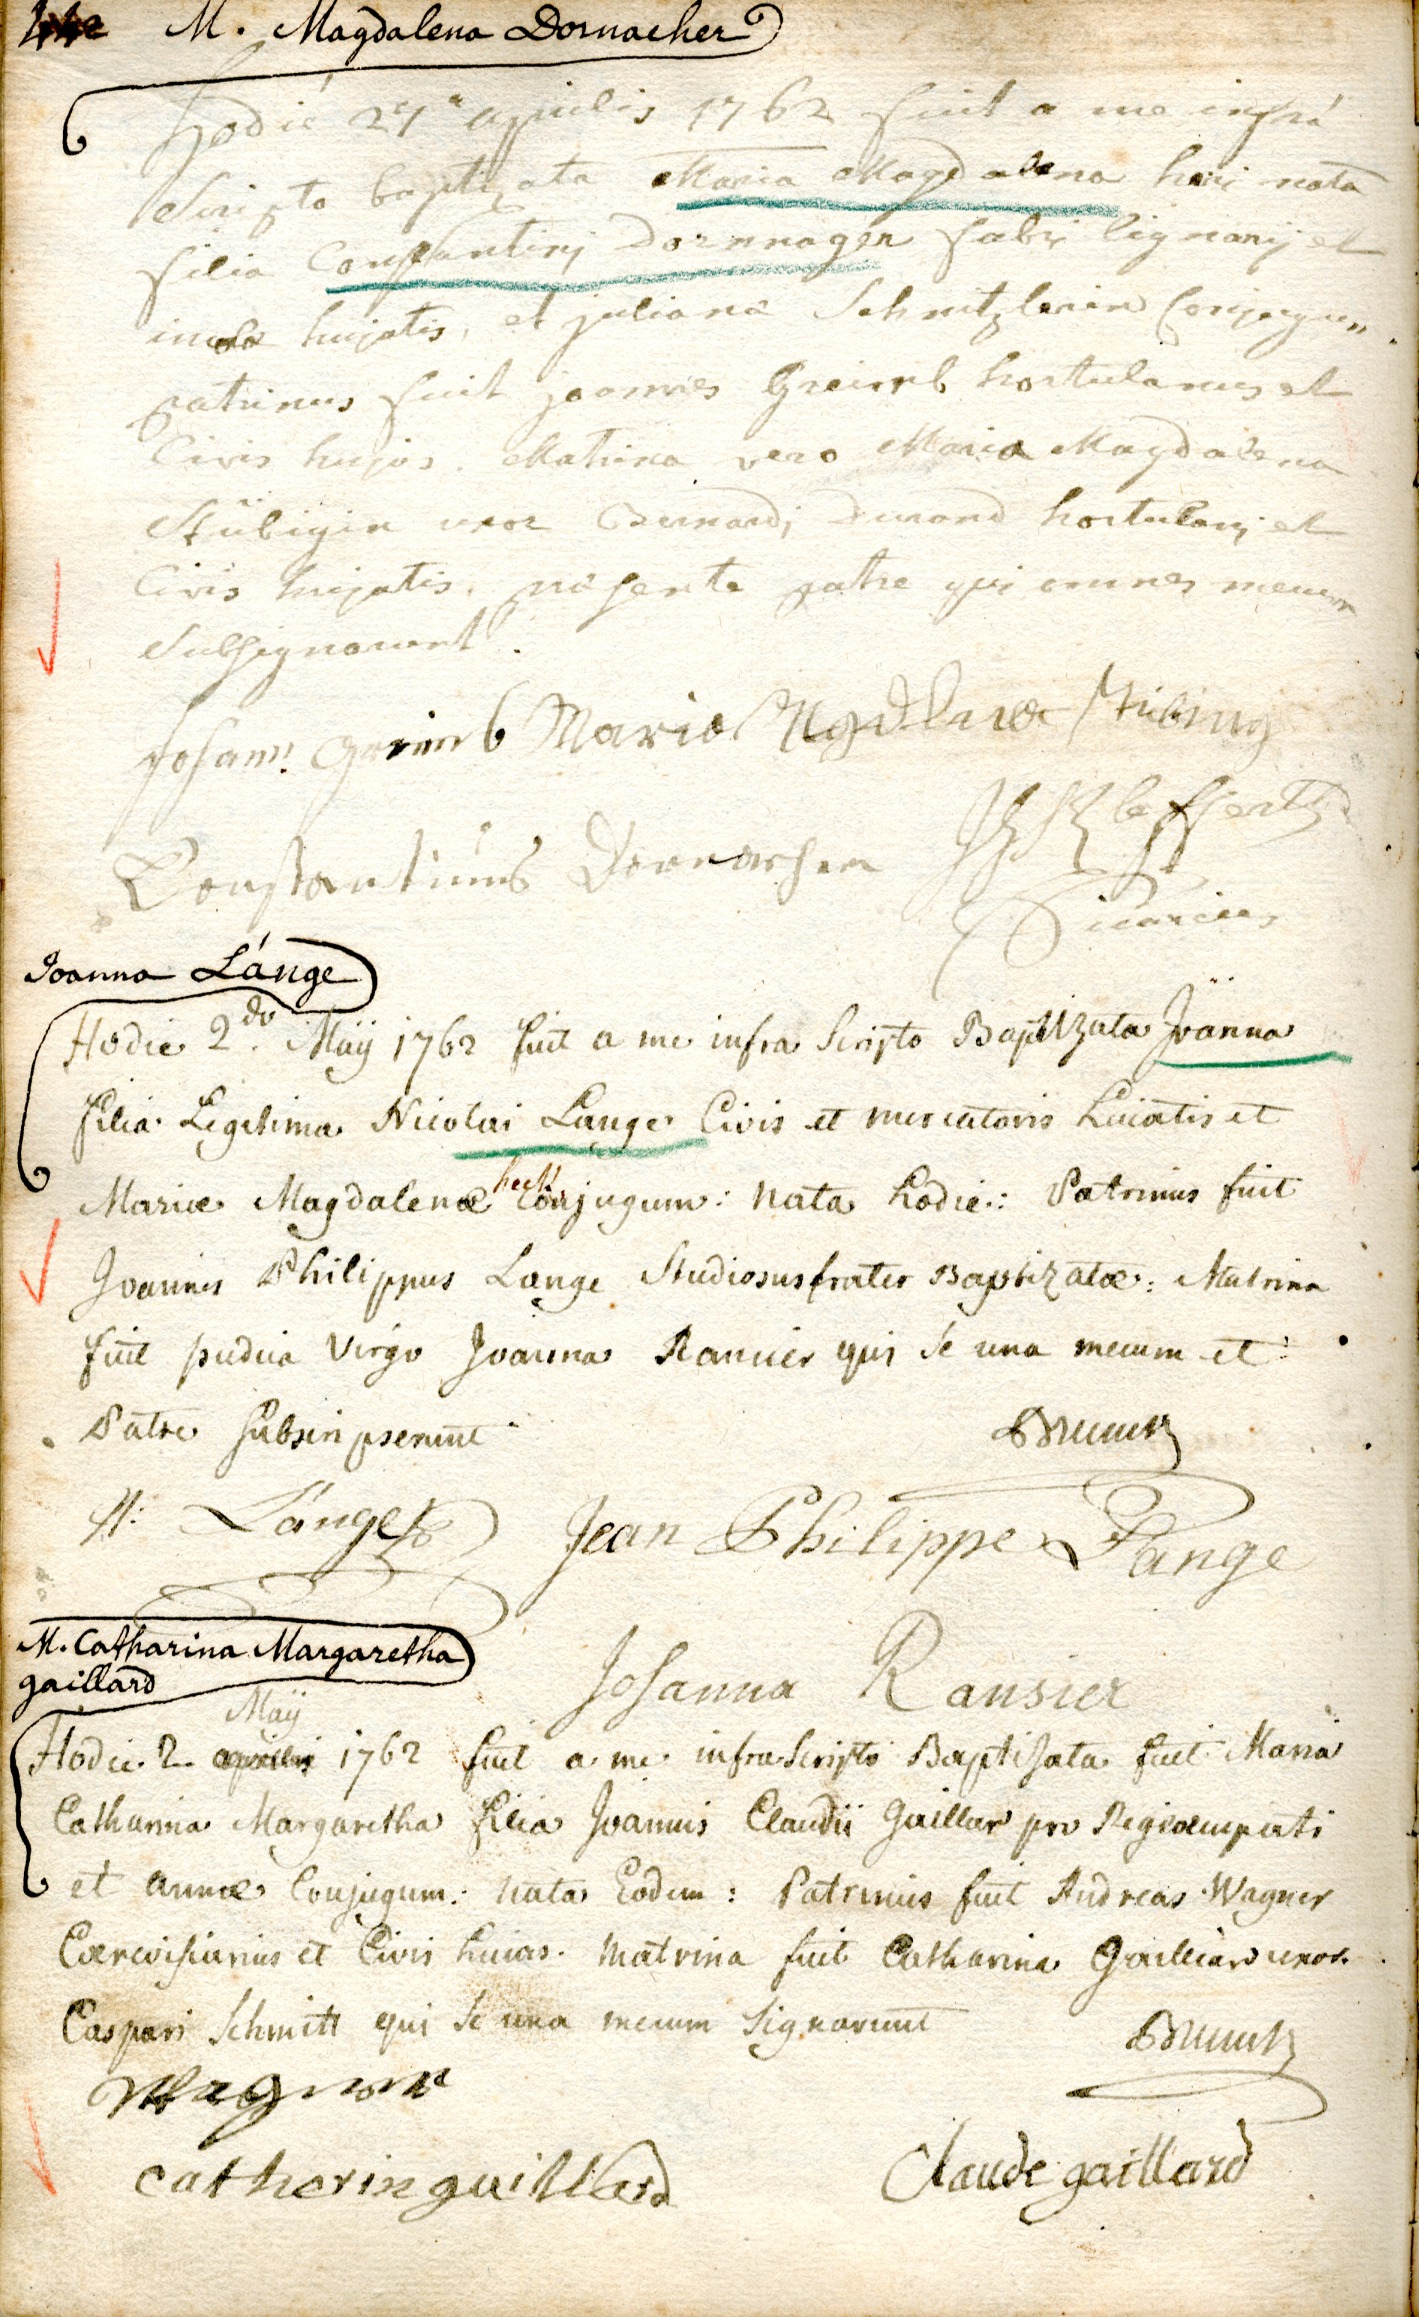 M. Magdalena Dornacher
Hodie 27a aprilis 1762 fuit a me infrá
Scripto baptizata Maria Magdalena heri nata
filia Constantinj Dornnager fabri lignarij et
incolæ hujatis, et julianæ Schnitzlerin Conjugu"
patrinus fuit joannes Greimb hortulanus et
Civis hujus. Matrina vero Maria Magdalena
Stübigin uxor Bernardj Durand hortulanj et
Civis hujatis. præsente patre qui omnes mecum
Subsignarunt.
Johann: Greimb Maria
Constantinus Dornacher
Vicarius
Joanna Lánge
Hodie 2do. Maÿ 1762 fuit a me infra Scripto Baptizata Joanna
filia Legitima Nicolai Lange Civis et mercatoris huiatis et
Mariæ Magdalenæ hech Conjugum: nata hodie: Patrinus fuit
Joannes Philippus Lange Studiosus frater Baptizatæ: Matrina
fuit pudica Virgo Joanna Rancier qui se una mecum et
Patre Subscripserunt
N: Lánge Jean Philippe Lange
Johanna Ransier
M. Catharina Margaretha
gaillard
Maÿ
Hodie 2 aprilis 1762 fuit a me infra Scripto Baptisata fuit Maria
Catharina Margaretha filia Joannis Claudii Gaillar pro Rege
et annæ Conjugum: nata Eodem: Patrinus fuit Andreas Wagner
Cærevisiarius et Civis huias. Matrina fuit Catharina Gailliard uxor
Caspari Schmitt qui se una mecum Signarunt
Wagner
catherin guillard Claude gaillard